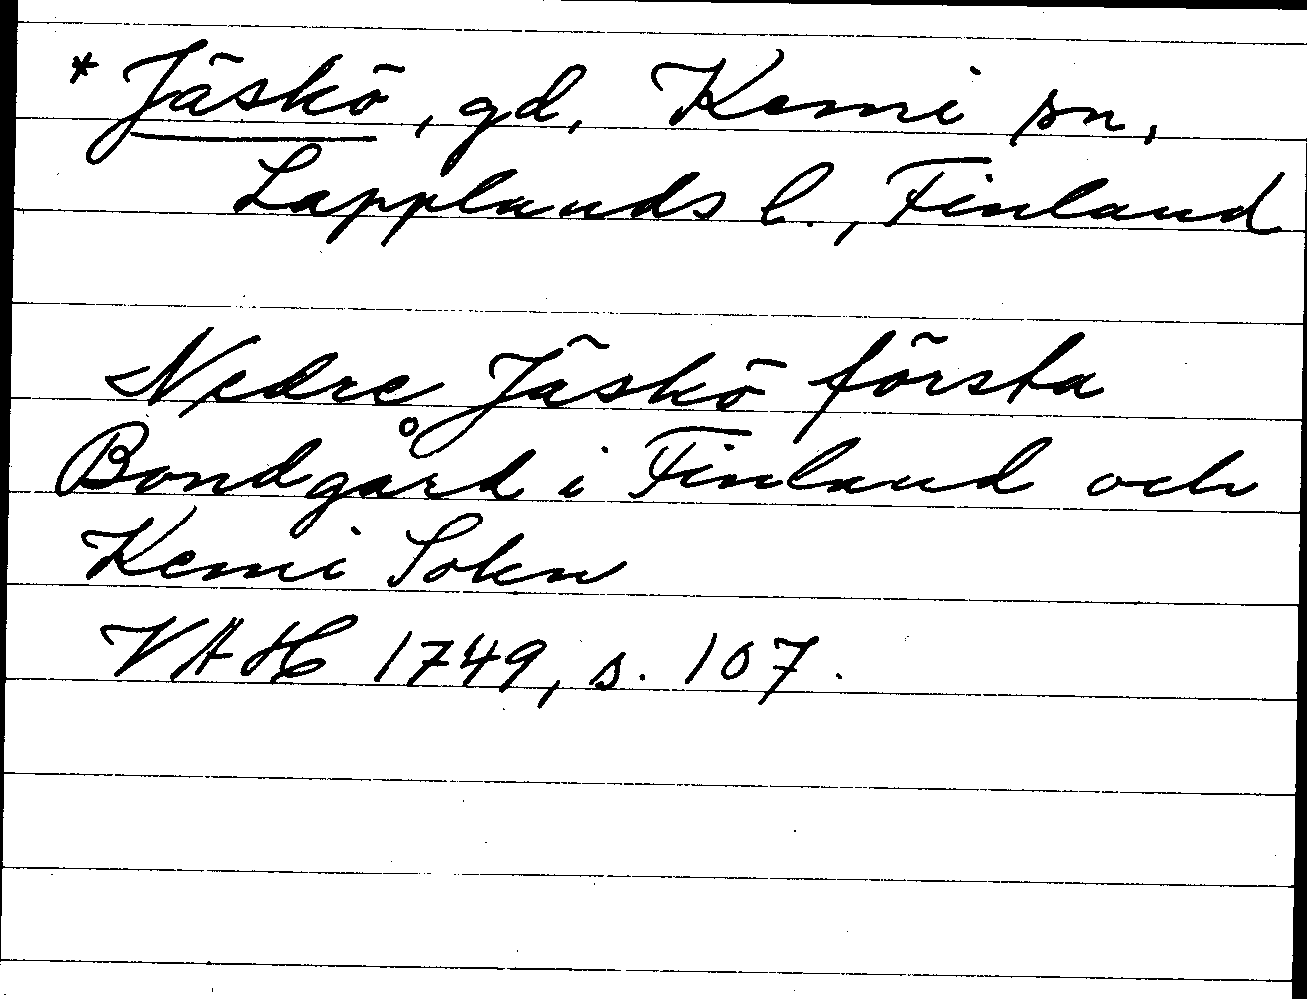 * Jäskö, gd, Kemi sn,
Lapplands l., Finland
Nedre Jäskö första
Bondgård i Finland och
Kemi Soken
VAH 1749, s. 107.